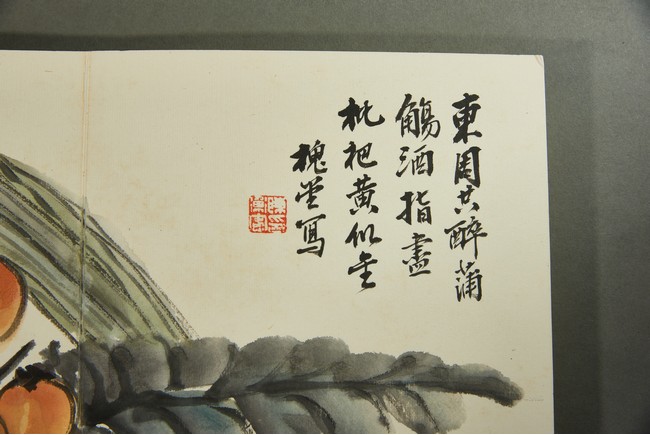 東周共醉蒲
觴酒指盡
枇杷黃似金
槐堂寫